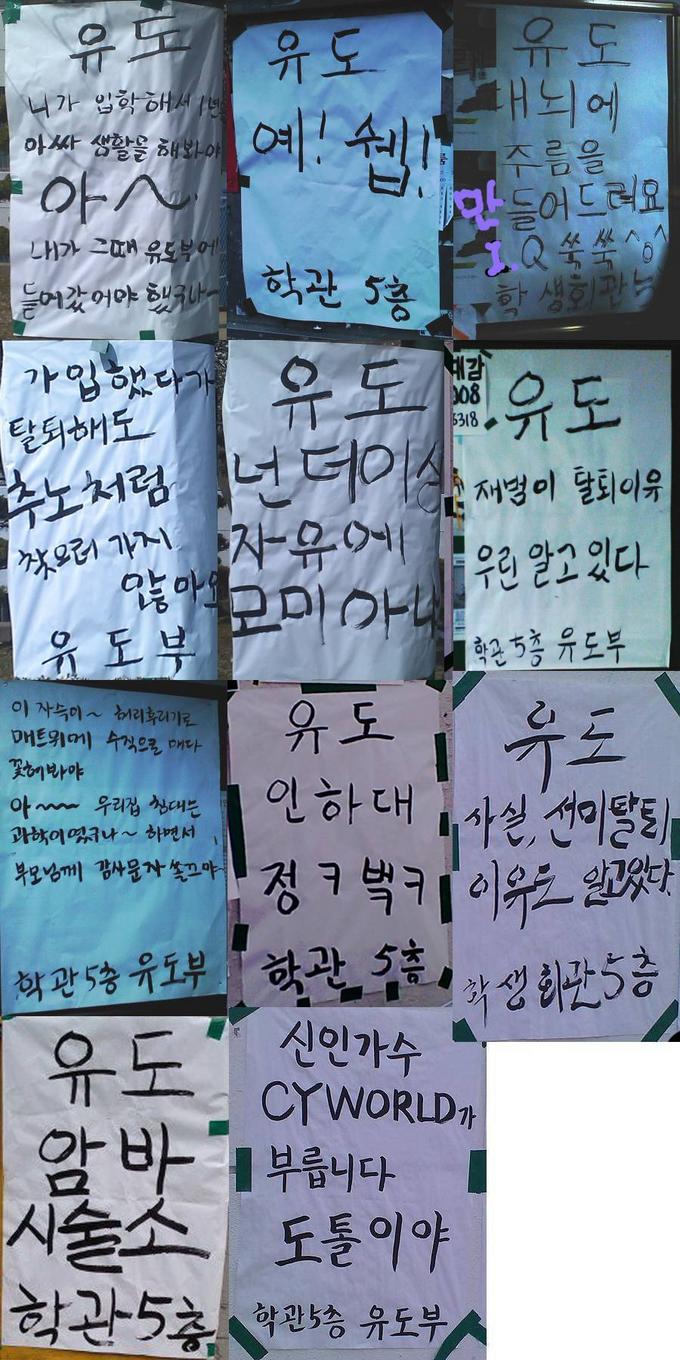 유도
니가 입학해서 1년
아싸 생활을 해봐야
아~
내가 그때 유도부에
들어갔어야 했구나~
유도
예! 쉡!
학관 5층
유도
대뇌에
주름을
만들어드려요
I.Q 쑥쑥^o^
학생회관
가입했다가
탈퇴해도
추노처럼
찾으러 가지
않아요
유도부
유도
넌 더이상
자유에
모미 아냐
체감
008
6318
유도
재범이 탈퇴이유
우린 알고있다
학관5층 유도부
이 자식이~ 허리후리기로
매트위에 수직으로 메다
꽂혀봐야
아~~~ 우리집 침대는
과학이였구나~ 하면서
부모님께 감사문자 쏠끄야
학관5층 유도부
유도
인하대
정ㅋ벅ㅋ
학관 5층
유도
사실, 선미탈퇴
이유도 알고있다.
학생회관5층
유도
암바
시술소
학관5층
신인가수
CYWORLD가
부릅니다
도톨이야
학관5층 유도부